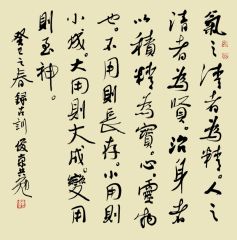 氣之清者為精。人之
清者為賢。治身者
以積精為寶。心靈物
也。不用則長存。小用則
小成。大用則大成。變用
則至神。
之春錄古訓